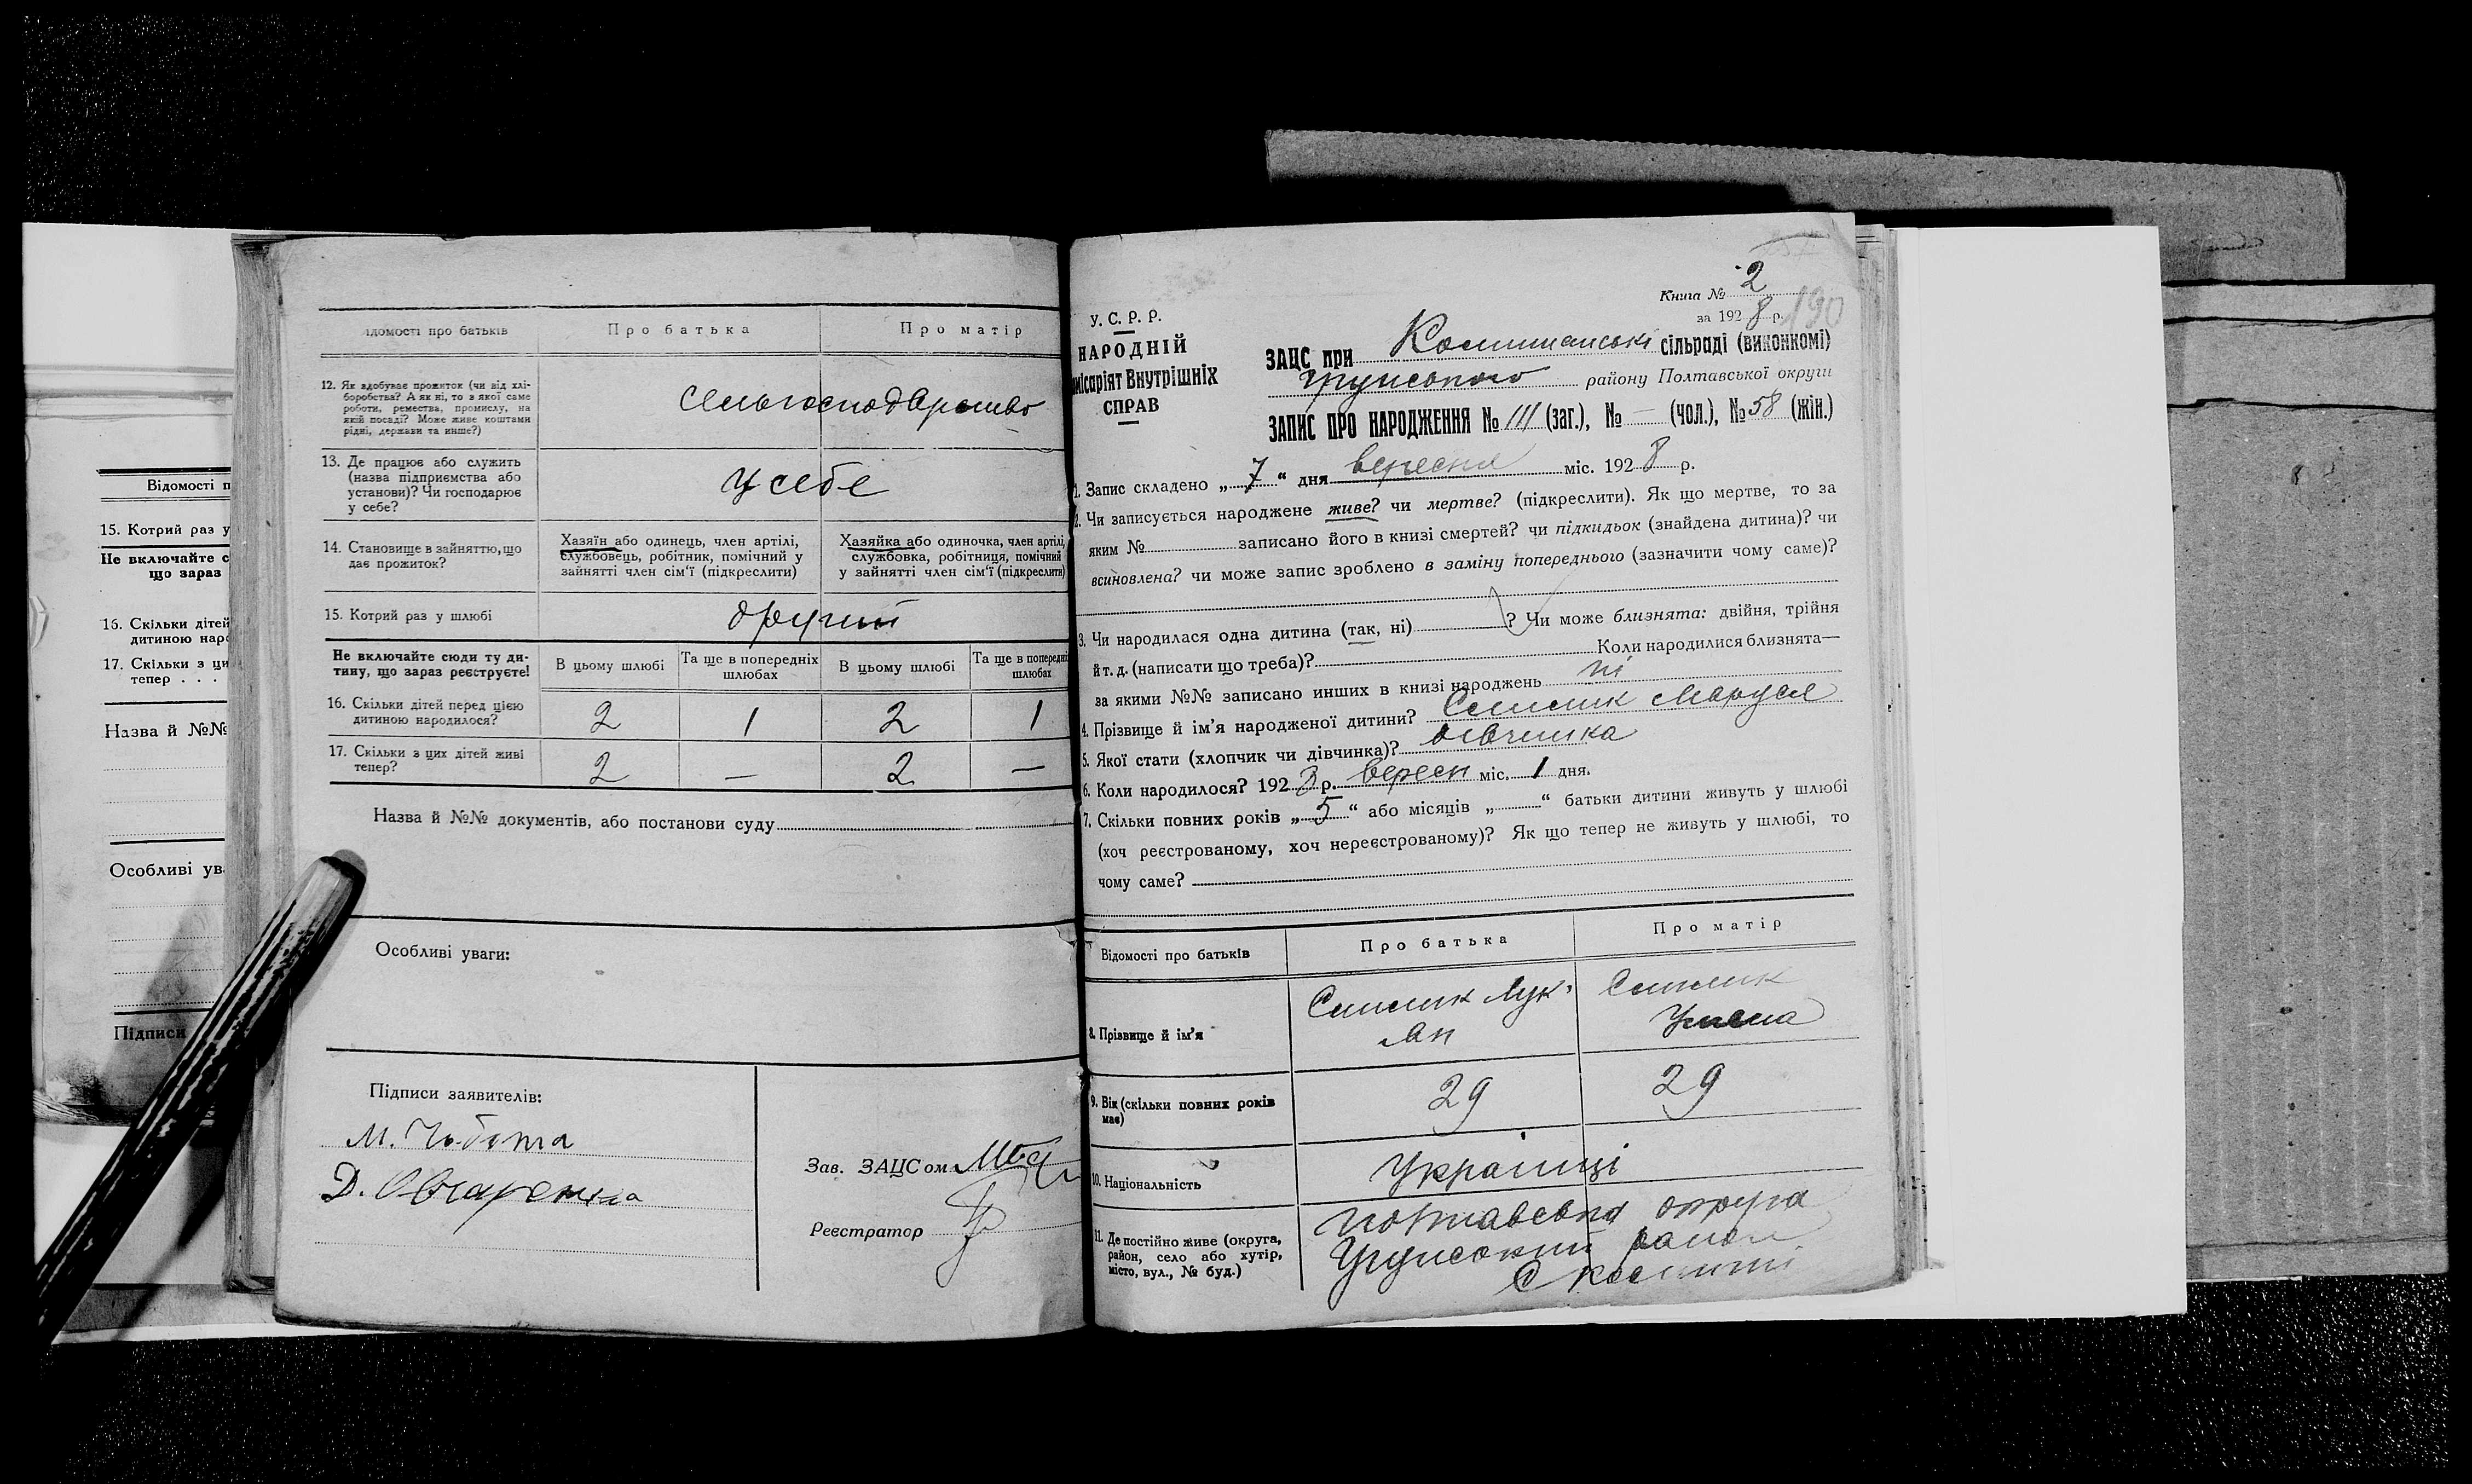 Відомості п
15. Котрий раз у
Не включайте с
що зараз
16. Скільки дітей
дитиною наро
17. Скільки з ци
тепер . . .
Назва й №№
Особливі ув
Підписи
ідомості про батьків
Про батька
Про матір
12. Як здобуває прожиток (чи від хлі-
боробства? А як ні, то з якої саме
роботи, ремества, промислу, на
якій посаді? Може живе коштами
рідні, держави та инше?)
Сельгосподарство
13. Де працює або служить
(назва підприємства або
установи)? Чи господарює
у себе?
У себе
14. Становище в зайняттю, що
дає прожиток?
Хазяїн або одинець, член артілі,
службовець, робітник, помічний у
зайнятті член сім'ї (підкреслити)
Хазяйка або одиночка, член артілі,
службовка, робітниця, помічний
у зайнятті член сім'ї (підкреслити)
15. Котрий раз у шлюбі
другий
Не включайте сюди ту ди-
тину, що зараз реєструєте!
В цьому шлюбі
Та ще в попередніх
шлюбах
В цьому шлюбі
Та ще в попередніх
шлюбах
16. Скільки дітей перед цією
дитиною народилося?
2 1 2 1
17. Скільки з цих дітей живі
тепер?
2 — 2 —
Назва й №№ документів, або постанови суду
Особливі уваги:
Підписи заявителів:
М. Чобота
Д. Овчаренка
Зав. ЗАЦСом
Реєстратор
Книга № 2
за 1928 р.
190
У. С. Р. Р.
НАРОДНІЙ
місаріят Внутрішніх
СПРАВ
ЗАЦС при сільраді (виконкомі)
району Полтавської округи
ЗАПИС ПРО НАРОДЖЕННЯ № 111 (заг.), № — (чол.), № 58 (жін.)
1. Запис складено „ 7 “ дня вересня міс. 1928 р.
2. Чи записується народжене живе? чи мертве? (підкреслити). Як що мертве, то за
яким № записано його в книзі смертей? чи підкидьок (знайдена дитина)? чи
всиновлена? чи може запис зроблено в заміну попереднього (зазначити чому саме)?
3. Чи народилася одна дитина (так, ні) ? Чи може близнята: двійня, трійня
й т. д. (написати що треба)? Коли народилися близнята—
за якими №№ записано инших в книзі народжень ні
4. Прізвище й ім'я народженої дитини? Маруся
5. Якої стати (хлопчик чи дівчинка)? дівчинка
6. Коли народилося? 1928 р. вересн міс. 1 дня.
7. Скільки повних років „ 5 “ або місяців „ “ батьки дитини живуть у шлюбі
(хоч реєстрованому, хоч нереєстрованому)? Як що тепер не живуть у шлюбі, то
чому саме?
Відомості про батьків
Про батька
Про матір
8. Прізвище й ім'я
Лук'
ян
9. Вік (скільки повних років
має)
29 29
10. Національність
Українці
11. Де постійно живе (округа,
район, село або хутір,
місто, вул., № буд.)
Полтавська округа
район
с